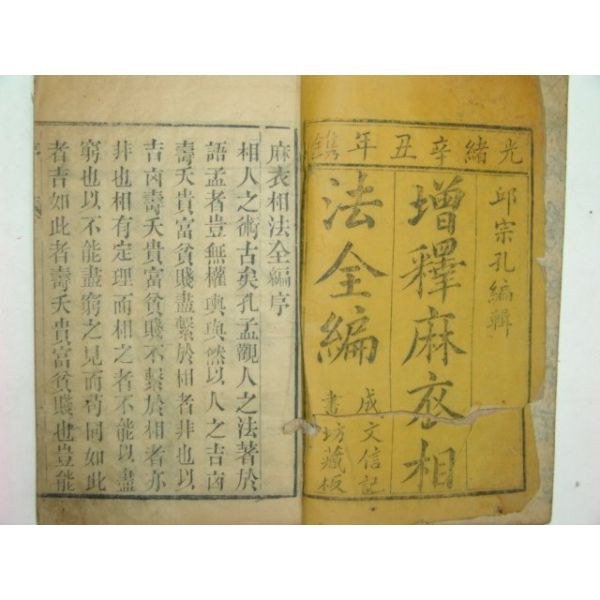 光緒辛丑年鐫
邱宗孔編輯
增釋麻衣相
法全編
成文信記
書坊藏板
麻衣相法全編序
相人之術古矣孔孟觀人之法著於
語孟者豈無權輿與然以人之吉凶
壽夭貴富貧賤盡繫於相者非也以
吉凶壽夭貴富貧賤不繫於相者亦
非也相有定理而相之者不能以盡
窮也以不能盡窮之見而苟同如此
者吉如此者壽夭貴富貧賤也豈能